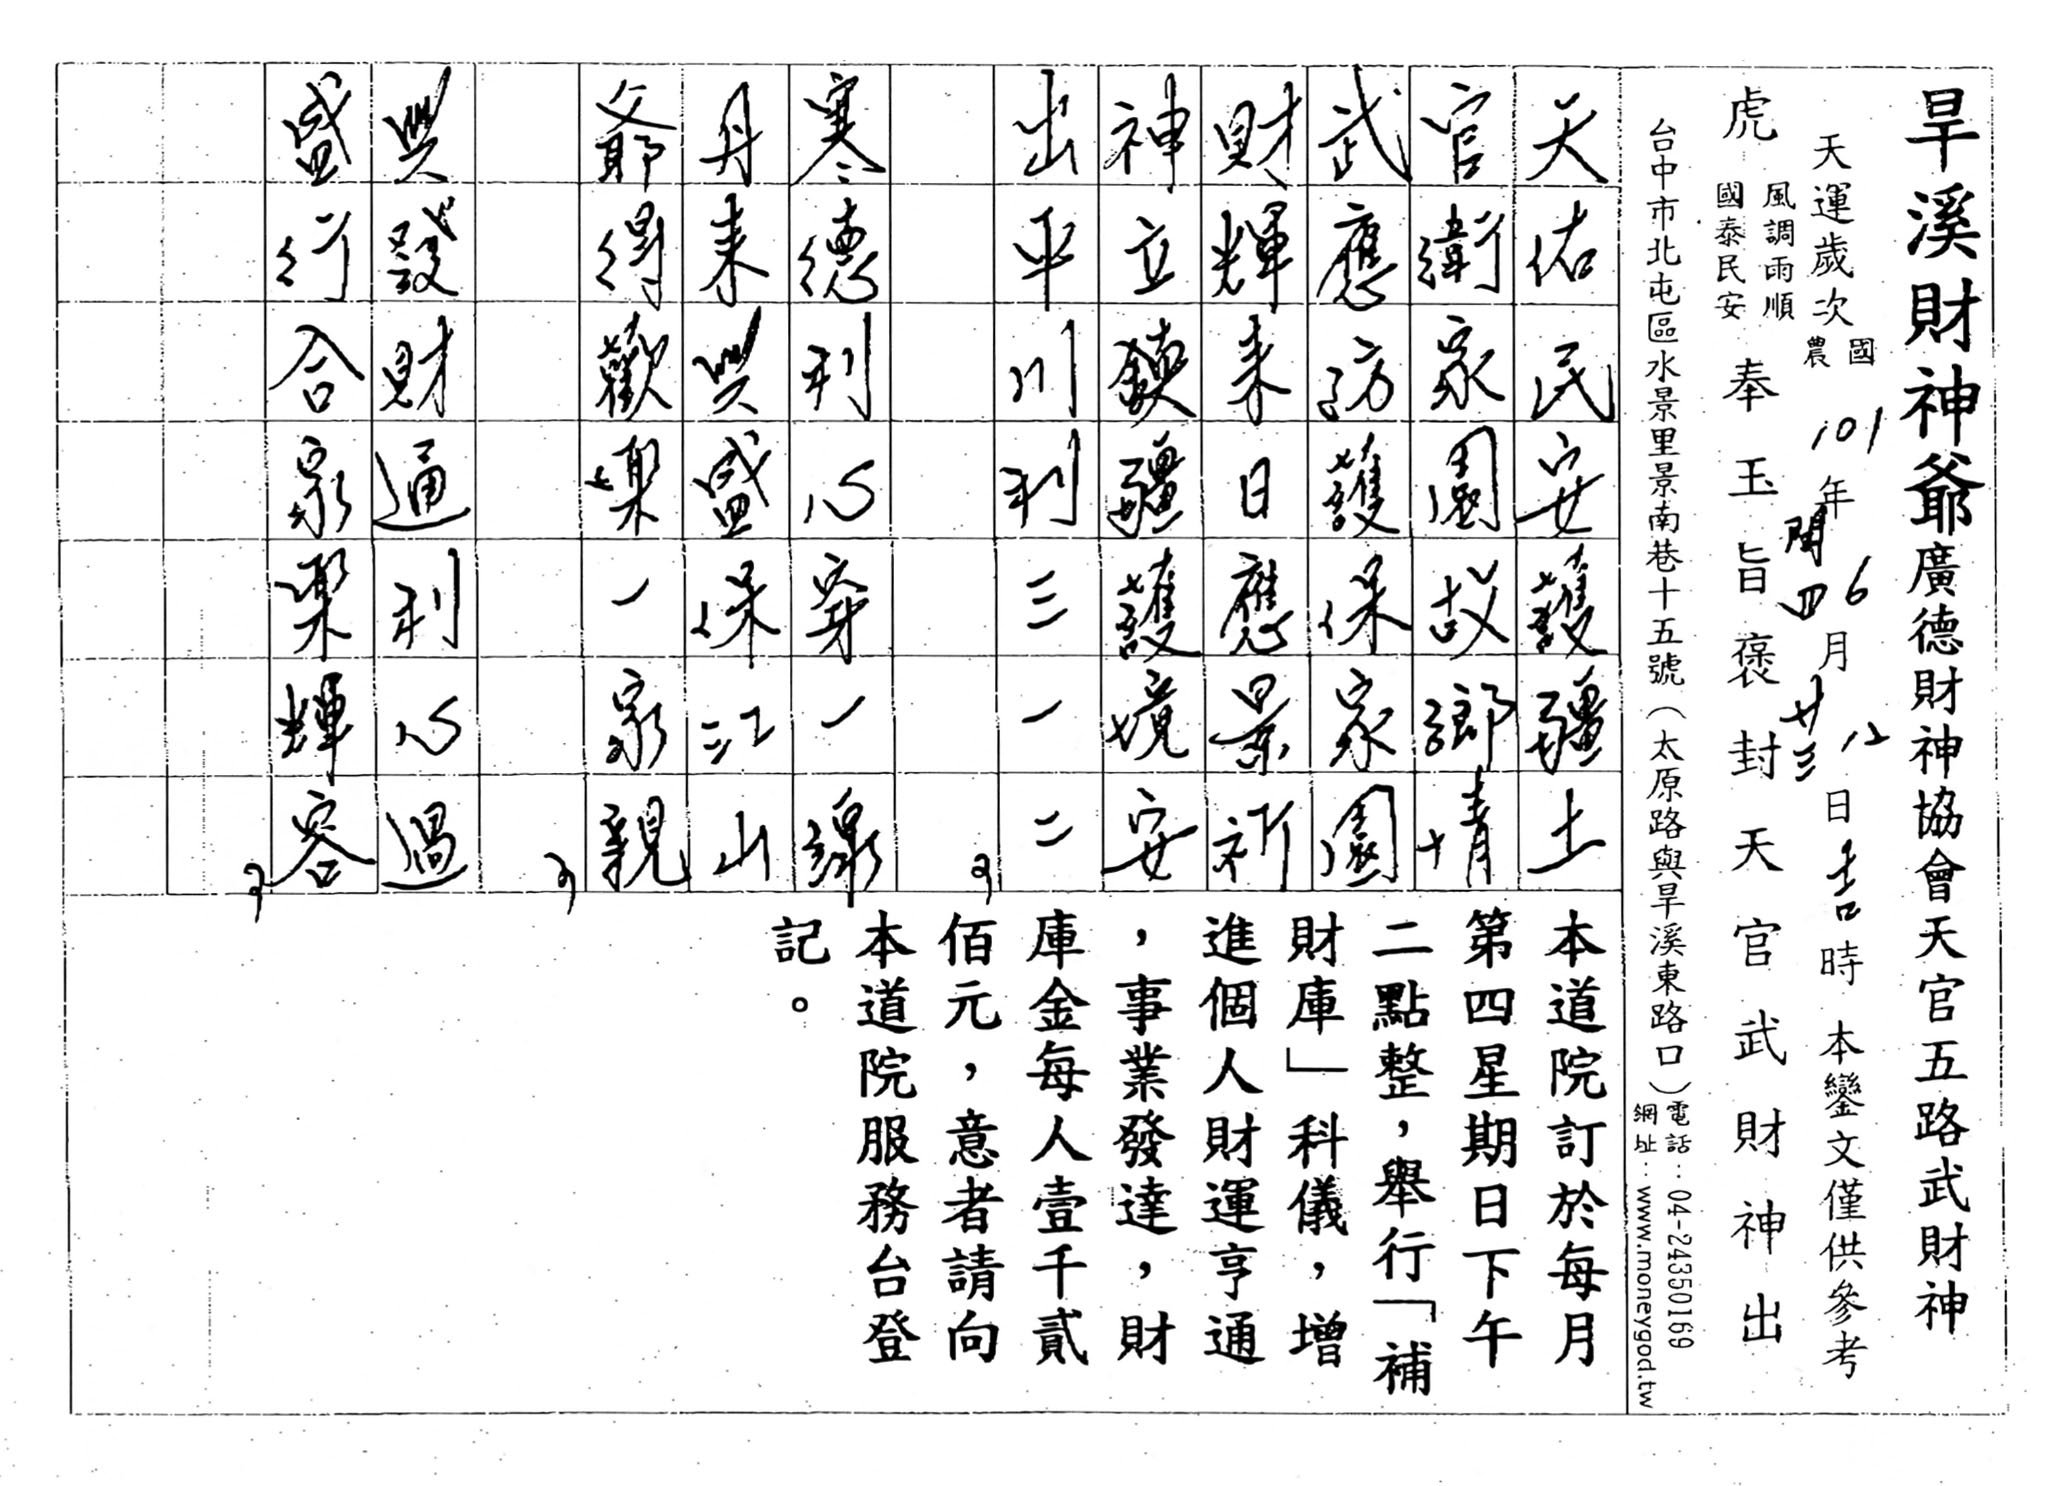 旱溪財神爺廣德財神協會天官五路武財神
天運歲次國農101年閏四6月廿三12日吉時 本鑾文僅供參考
虎風調雨順國泰民安奉玉旨褒封天官武財神出
台中市北屯區水景里景南巷十五號（太原路與旱溪東路口）
電話：04-24350169
網址：www.moneygod.tw
天佑民安護疆土
官衛家園故鄉情
武應防護保家園
財輝來日應景祈
神立鎮疆護境安
出平川利三一二
寒德利心穿一線
丹來興盛保江山
爺得歡樂一家親
興發財通利心過
盛行合家樂輝容
本道院訂於每月
第四星期日下午
二點整，舉行「補
財庫」科儀，增
進個人財運亨通
，事業發達，財
庫金每人壹千貳
佰元，意者請向
本道院服務台登
記。